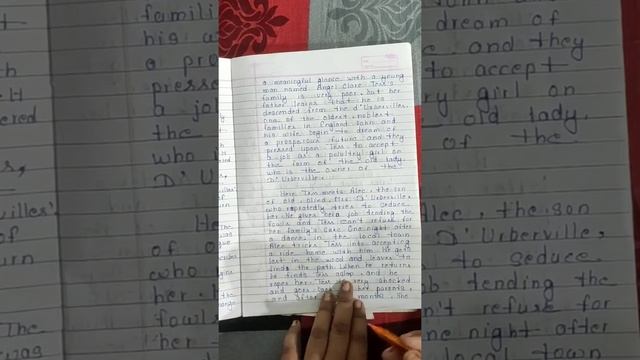 a meaningful glance with a young
man named Angel Clare. Tess's
family is very poor, but her
father learns that he is
descended from the d'Urbervilles,
one of the oldest, noblest
families in England. John and
his wife begin to dream of
a prosperous future and they
pressed upon Tess to accept
a job as a poultry girl on
the farm of the old lady,
who is the owner of the
D'Urberville.
Here Tess meets Alec, the son
of old, blind, Mrs. D'Urberville,
who repeatedly tries to seduce
her. He gives her a job tending the
fowls and Tess can't refuse for
her family's sake. One night after
a dance in the local town
Alec tricks Tess into accepting
a ride home with him. He gets
lost in the wood and leaves to
find the path. When he returns
he finds her asleep, and he
rapes her. Tess is very shocked
and goes back her parents
and after months. She